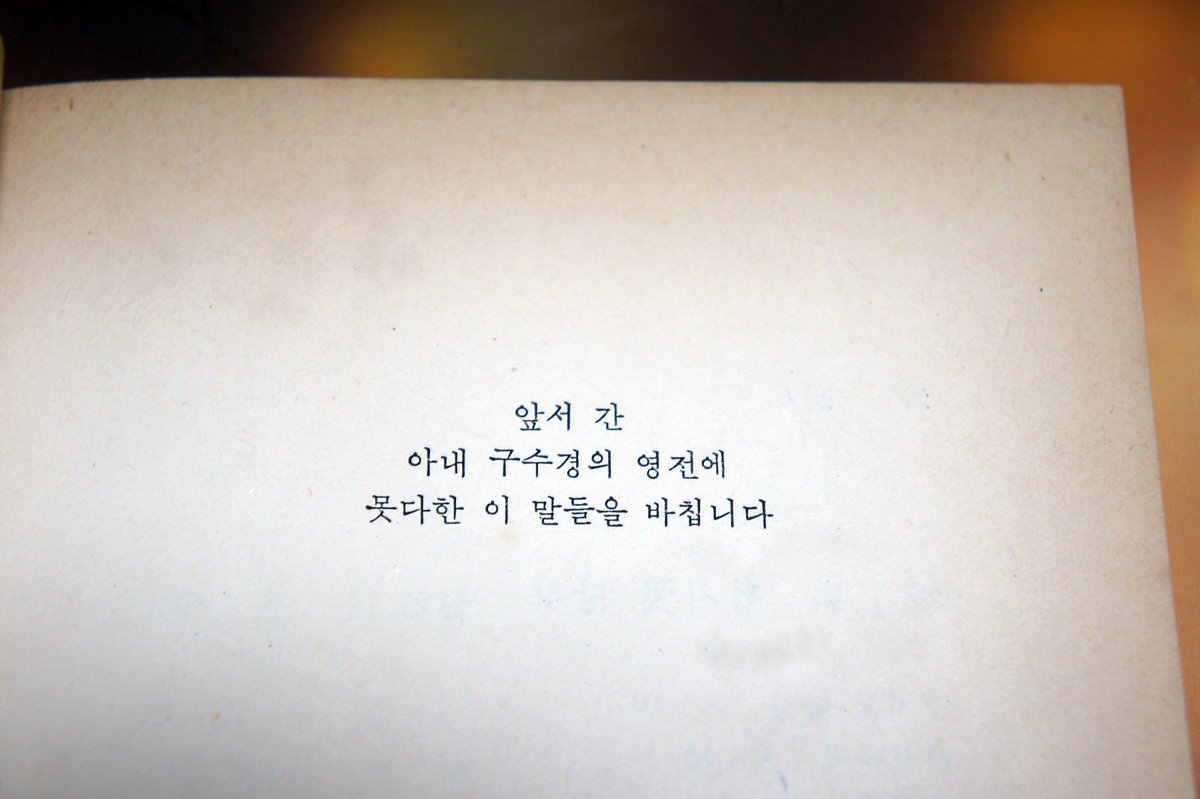 앞서 간
아내 구수경의 영전에
못다한 이 말들을 바칩니다